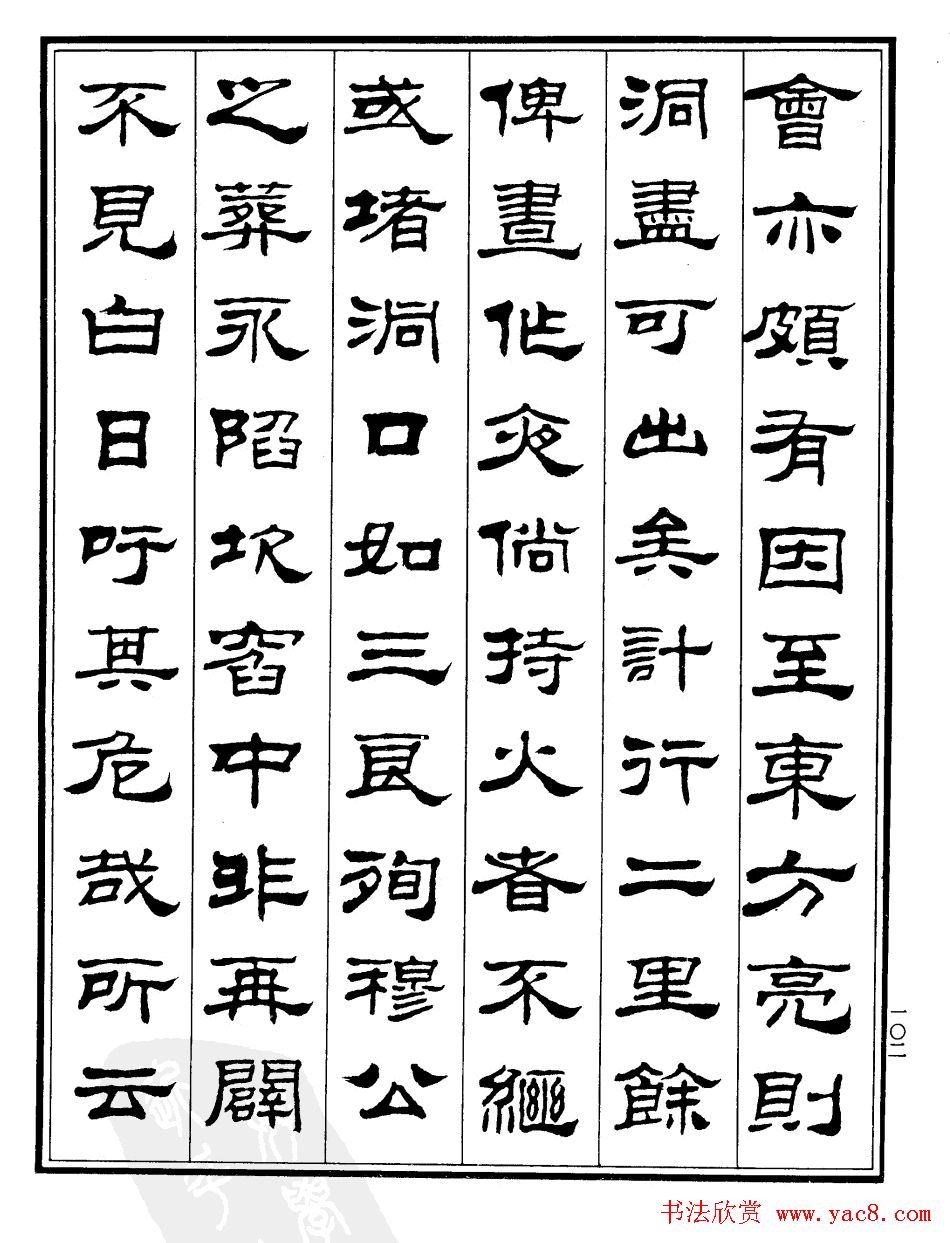 會亦頗有因至東方亮則
洞盡可出矣計行二里餘
俾晝作夜倘持火者不繼
或堵洞口如三良殉穆公
之葬永陷坎窞中非再闢
不見白日吁其危哉所云
一〇二
书法欣赏 www.yac8.com